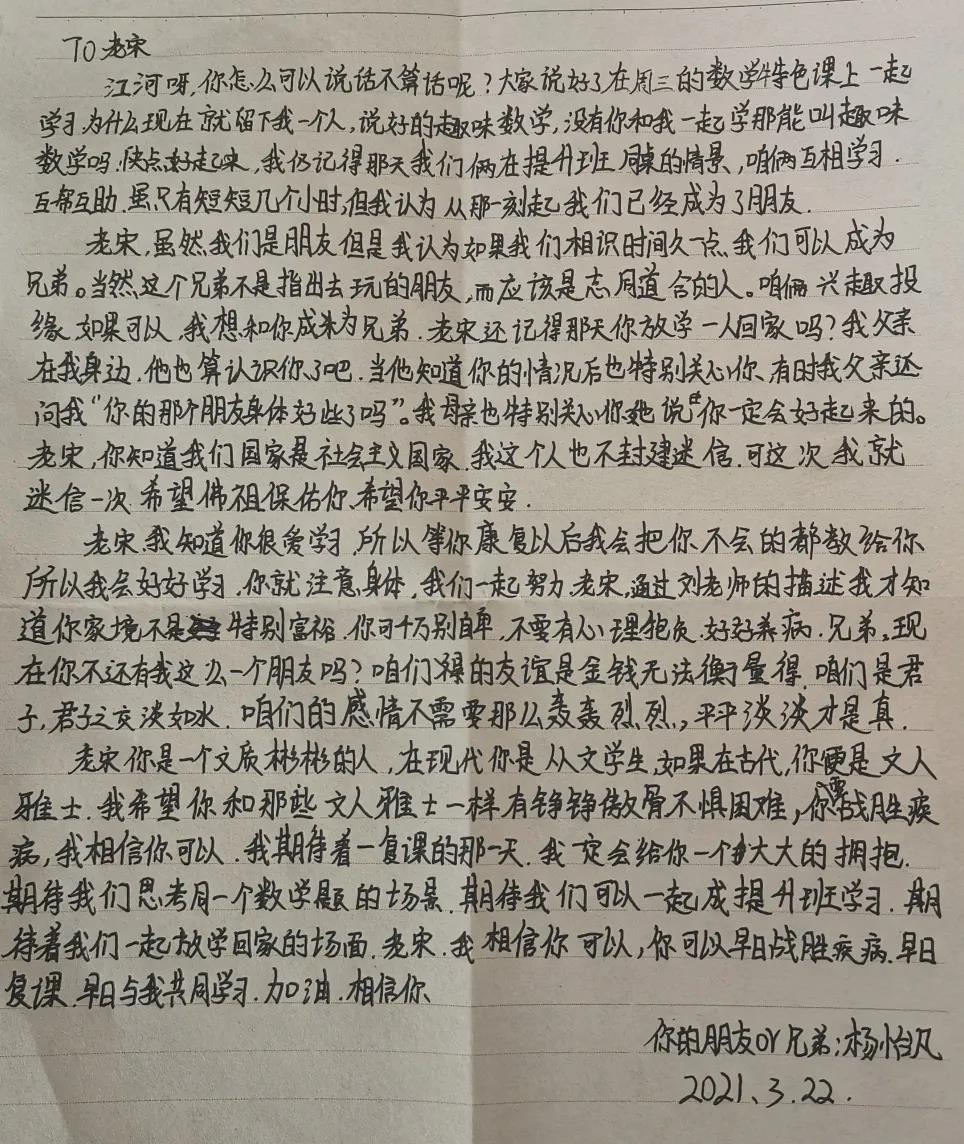 TO 老宋
江河呀,你怎么可以说话不算话呢?大家说好了在周三的数学特色课上一起
学习,为什么现在就留下我一个人,说好的趣味数学,没有你和我一起学那能叫趣味
数学吗.快点好起来,我仍记得那天我们俩在提升班同桌的情景,咱俩互相学习.
互帮互助.虽只有短短几个小时,但我认为从那一刻起我们已经成为了朋友.
老宋,虽然我们是朋友但是我认为如果我们相识时间久一点,我们可以成为
兄弟。当然这个兄弟不是指出去玩的朋友,而应该是志同道合的人。咱俩兴趣投
缘.如果可以,我想和你成为兄弟.老宋还记得那天你放学一人回家吗?我父亲
在我身边.他也算认识你了吧.当他知道你的情况后也特别关心你、有时我父亲还
问我“你的那个朋友身体好些了吗”。我母亲也特别关心你她说“你一定会好起来的。
老宋,你知道我们国家是社会主义国家.我这个人也不封建迷信.可这次我就
迷信一次.希望佛祖保佑你.希望你平平安安.
老宋.我知道你很爱学习.所以等你康复以后我会把你不会的都教给你
所以我会好好学习.你就注意身体,我们一起努力.老宋,通过刘老师的描述我才知
道你家境不是特别富裕.你可千万别自卑.不要有心理抱负.好好养病.兄弟,现
在你不还有我这么一个朋友吗?咱们的友谊是金钱无法衡量得.咱们是君
子,君子之交淡如水.咱们的感情不需要那么轰轰烈烈,平平淡淡才是真.
老宋你是一个文质彬彬的人,在现代你是从文学生,如果在古代,你便是文人
雅士.我希望你和那些文人雅士一样有铮铮傲骨不惧困难,你要战胜疾
病,我相信你可以.我期待着一复课的那一天.我一定会给你一个大大的拥抱.
期待我们思考同一个数学题的场景.期待我们可以一起成提升班学习.期
待着我们一起放学回家的场面.老宋.我相信你可以,你可以早日战胜疾病.早日
复课.早日与我共同学习.加油.相信你、
你的朋友or兄弟:杨怡凡
2021.3.22.